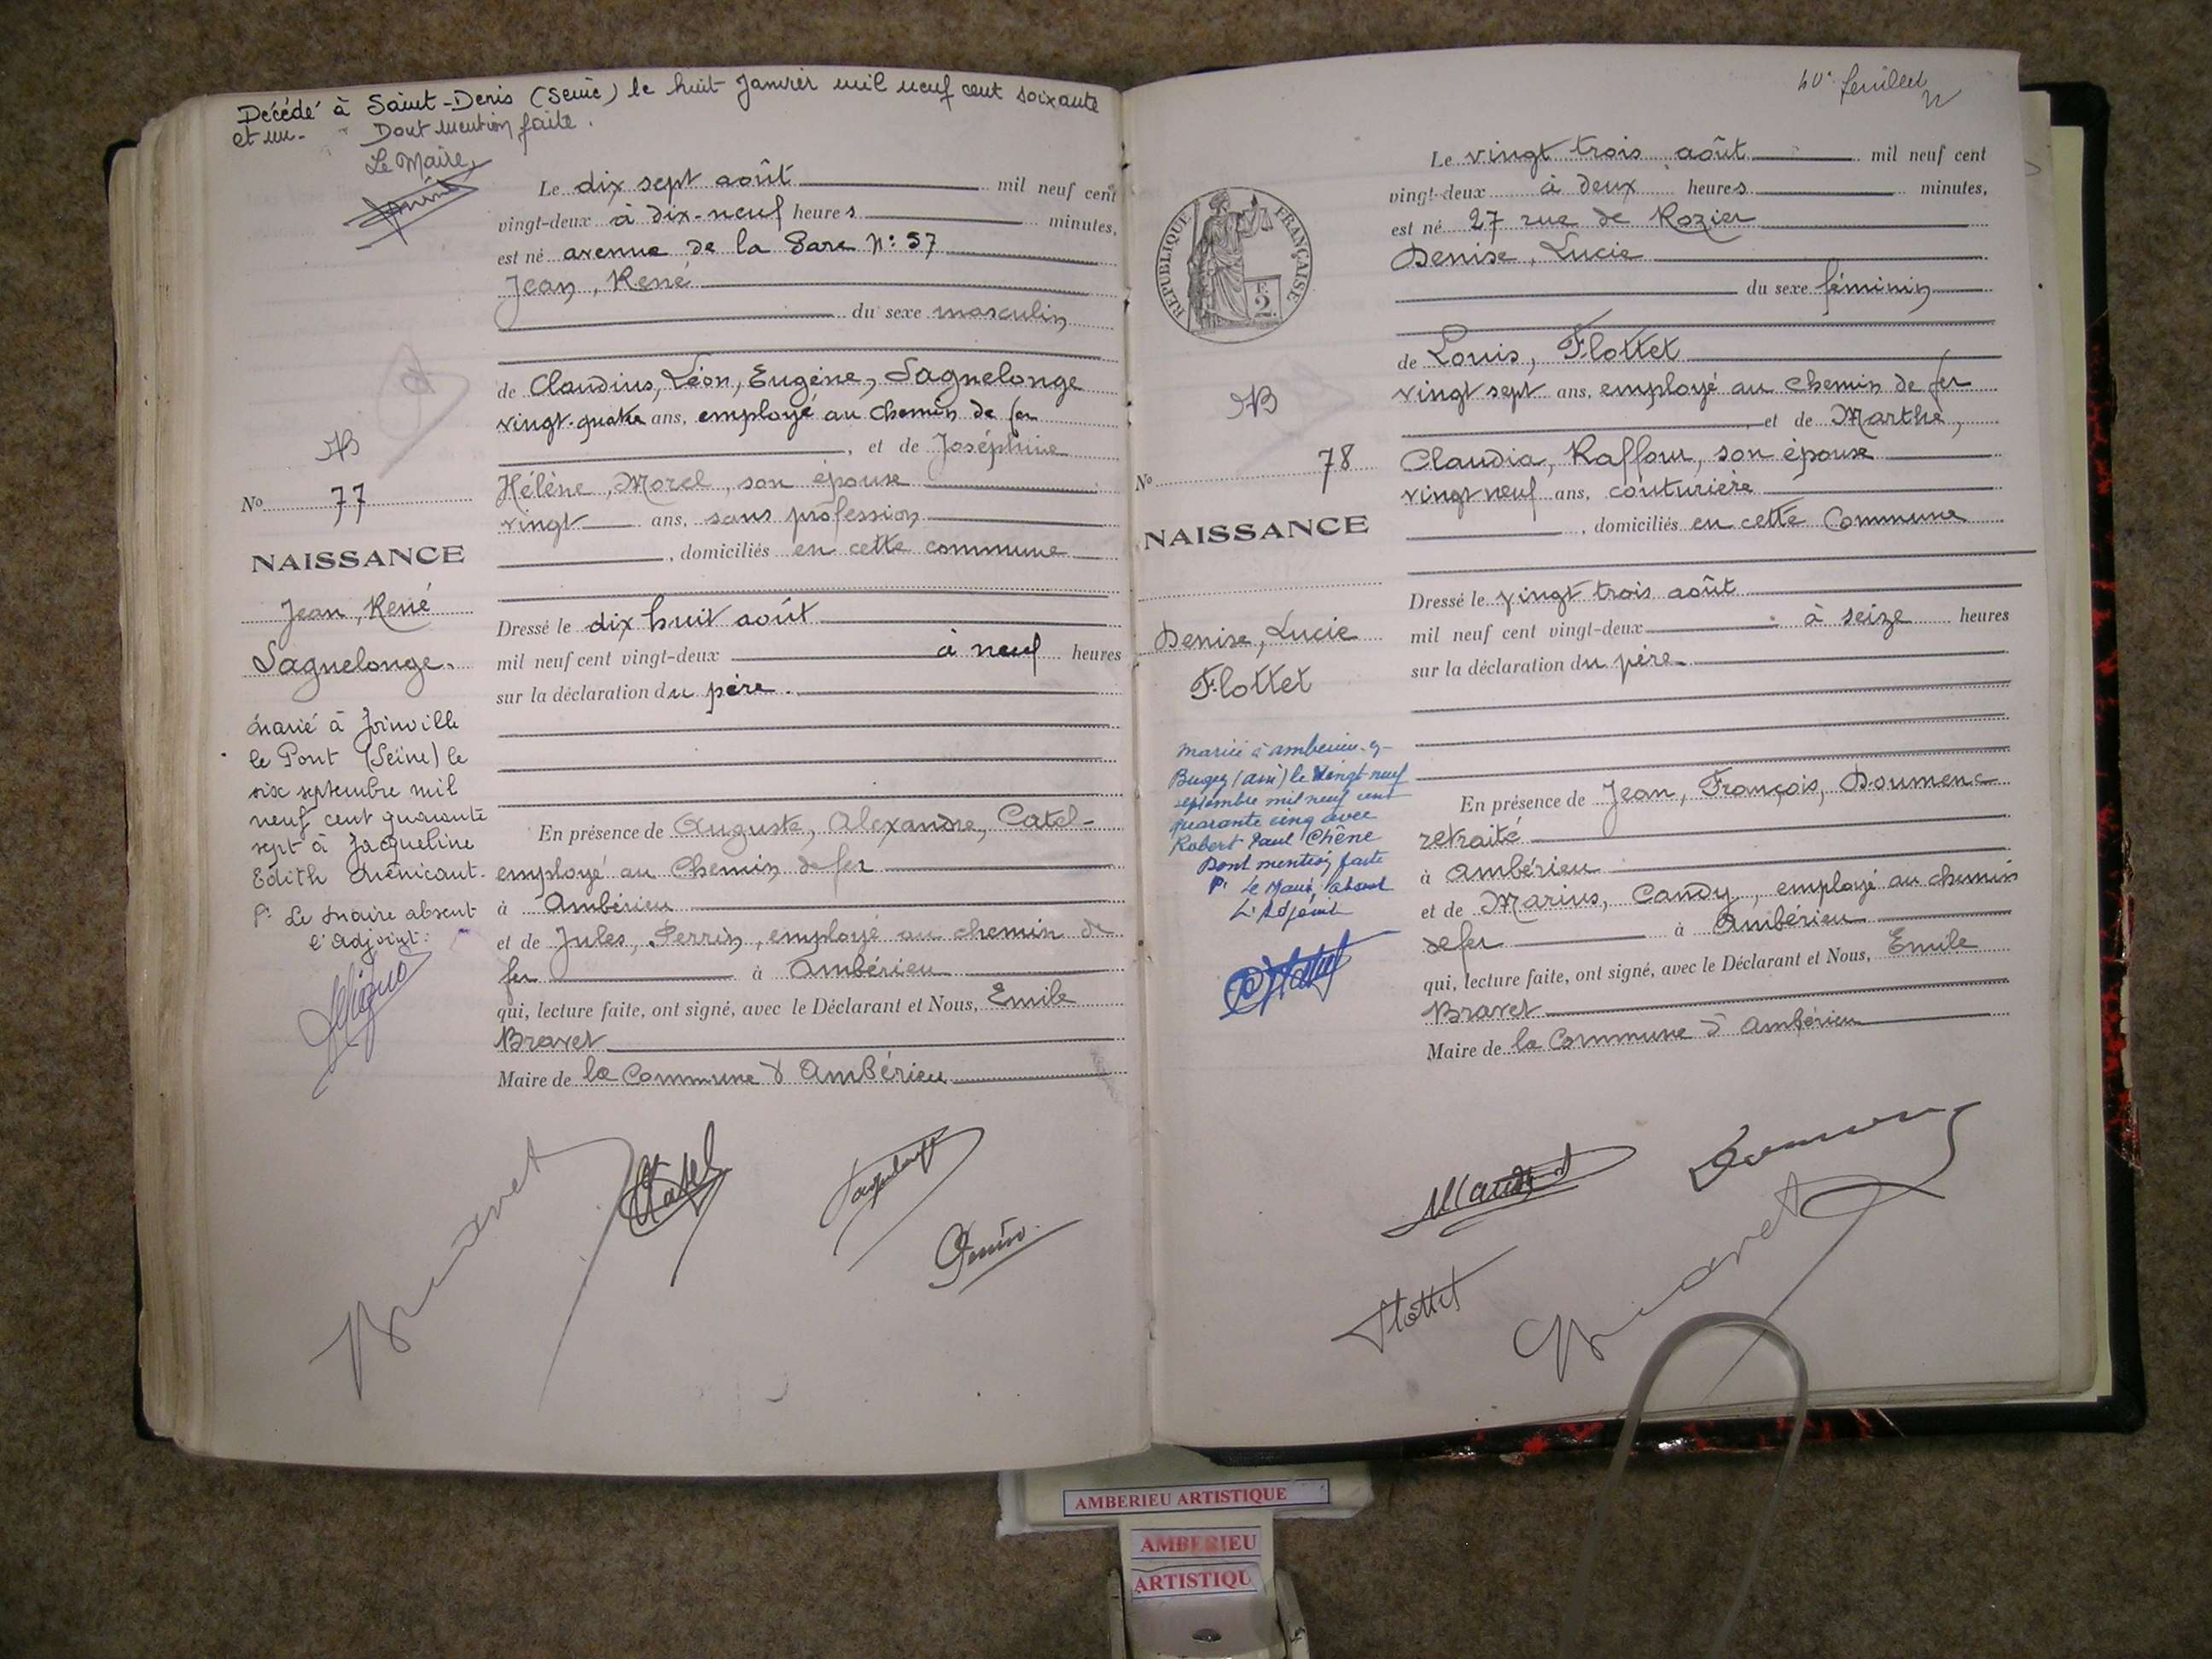 Décédé à Saint-Denis (Seine) le huit Janvier mil neuf cent soixante
et un. Dont mention faite.
Le Maire,
Le dix sept août mil neuf cent
vingt-deux à dix-neuf heures minutes,
est né avenue de la Gare N° 57
Jean, René
du sexe masculin
de Claudius, Léon, Eugène, Lagnelonge
vingt-quatre ans, employé au chemin de fer
, et de Joséphine
Hélène, Morel, son épouse
vingt ans, sans profession
, domiciliés en cette commune
Dressé le dix huit août
mil neuf cent vingt-deux à neuf heures
sur la déclaration du père.
En présence de Auguste, Alexandre, Catel
employé au Chemin de fer
à Ambérieu
et de Jules, Perrin, employé au chemin de
fer à Ambérieu
qui, lecture faite, ont signé, avec le Déclarant et Nous, Emile
Bravet
Maire de la Commune d'Ambérieu
No 77
NAISSANCE
Jean, René
Lagnelonge.
Marié à Joinville
le Pont (Seine) le
six septembre mil
neuf cent quarante
sept à Jacqueline
Edith
Pr Le Maire absent
l'adjoint:
Bravet
Catel
Lagnelonge
Perrin
40e feuillet
Le vingt trois août mil neuf cent
vingt-deux à deux heures minutes,
est né 27 rue de Rozier
Denise, Lucie
du sexe féminin
de Louis, Flottet
vingt sept ans, employé au chemin de fer
et de Marthe,
Claudia, Raffour, son épouse
vingt neuf ans, couturière
, domiciliés en cette Commune
Dressé le vingt trois août
mil neuf cent vingt-deux à seize heures
sur la déclaration du père
En présence de Jean, François, Doumenc
retraité
à Ambérieu
et de Marius, Candy, employé au chemin
de fer à Ambérieu
qui, lecture faite, ont signé, avec le Déclarant et Nous, Emile
Bravet
Maire de la Commune d'Ambérieu
REPUBLIQUE FRANÇAISE
2
No 78
NAISSANCE
Denise, Lucie
Flottet
Mariée à Ambérieu-en-
Bugey (Ain) le vingt-neuf
septembre mil neuf cent
quarante cinq avec
Robert Paul Chêne
Dont mention faite
Pr Le Maire absent
L'Adjoint
Doumenc
Flottet
Bravet
AMBERIEU ARTISTIQUE
AMBERIEU
ARTISTIQU